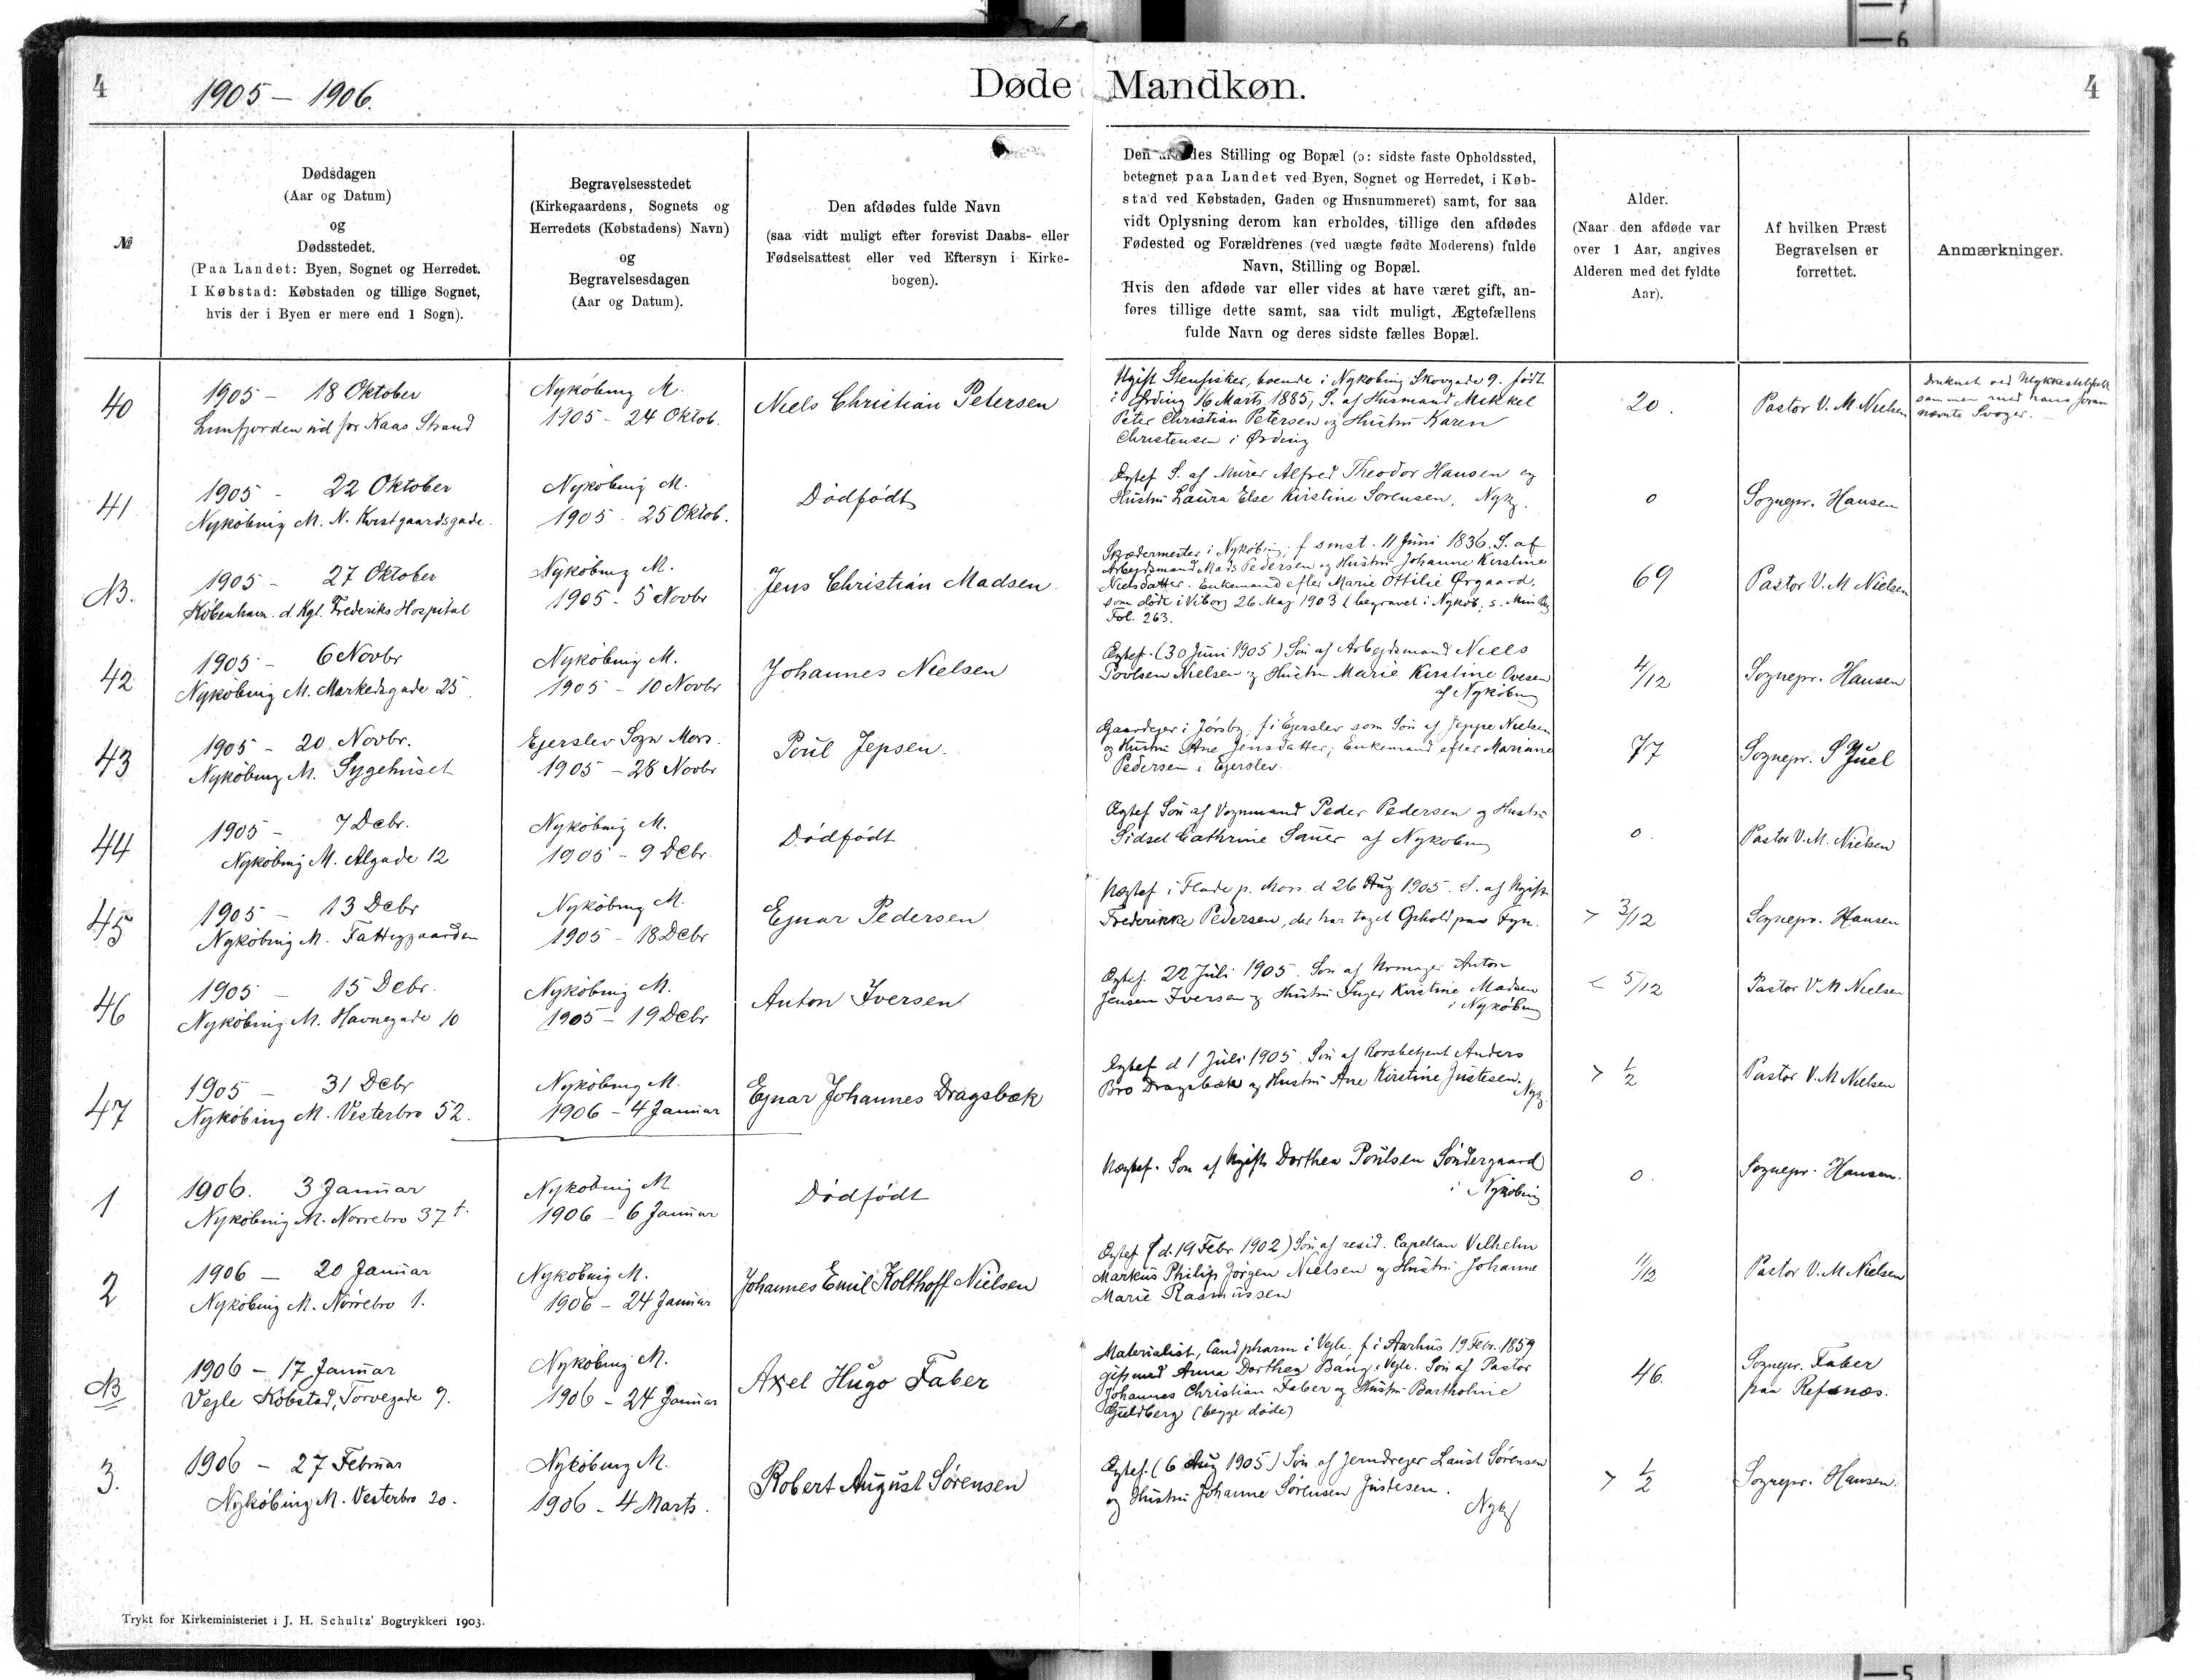 4
1905 – 1906.
Døde Mandkøn.
4
№
Dødsdagen
(Aar og Datum)
og
Dødsstedet.
(Paa Landet: Byen, Sognet og Herredet.
I Købstad: Købstaden og tillige Sognet,
hvis der i Byen er mere end 1 Sogn).
Begravelsesstedet
(Kirkegaardens, Sognets og
Herredets (Købstadens) Navn)
og
Begravelsesdagen
(Aar og Datum).
Den afdødes fulde Navn
(saa vidt muligt efter forevist Daabs- eller
Fødselsattest eller ved Eftersyn i Kirke-
bogen).
Den afdødes Stilling og Bopæl (ɔ: sidste faste Opholdssted,
betegnet paa Landet ved Byen, Sognet og Herredet, i Køb-
stad ved Købstaden, Gaden og Husnummeret) samt, for saa
vidt Oplysning derom kan erholdes, tillige den afdødes
Fødested og Forældrenes (ved uægte fødte Moderens) fulde
Navn, Stilling og Bopæl.
Hvis den afdøde var eller vides at have været gift, an-
føres tillige dette samt, saa vidt muligt, Ægtefællens
fulde Navn og deres sidste fælles Bopæl.
Alder.
(Naar den afdøde var
over 1 Aar, angives
Alderen med det fyldte
Aar).
Af hvilken Præst
Begravelsen er
forrettet.
Anmærkninger.
40
1905 – 18 Oktober
Limfjorden ud for Kaas Strand
Nykøbing M.
1905 – 24 Oktob.
Niels Christian Petersen
Ugift Stenfisker, boende i Nykøbing Skovgade 9. født
i Ørding 16 Marts 1885, S. af Husmand Mikkel
Peter Christian Petersen og Hustru Karen
Christensen i Ørding
20.
Pastor V. M. Nielsen
Druknet ved Ulykkestilfælde
sammen med hans foran
nævnte Svoger. –
41
1905 – 22 Oktober
Nykøbing M. N.
Nykøbing M.
1905 – 25 Oktob.
Dødfødt
Ægtef S. af Murer Alfred Theodor Hansen og
Hustru Laura Else Kirstine Sørensen, Nykg.
0
Sognepr. Hansen
NB.
1905 – 27 Oktober
København. d. Kgl. Frederiks Hospital
Nykøbing M.
1905 – 5 Novbr
Jens Christian Madsen
Skrædermester i Nykøbing, f smst. 11 Juni 1836. S. af
Arbejdsmand Mads Pedersen og Hustru Johanne Kirstine
Nielsdatter. Enkemand efter Marie Ottilie Ørgaard,
som døde i Viborg 26 Maj 1903 (begravet i Nykøb. s. Min Bg
Fol. 263.
69
Pastor V. M Nielsen
42
1905 – 6 Novbr
Nykøbing M. Markedsgade 25
Nykøbing M.
1905 – 10 Novbr
Johannes Nielsen
Ægtef. (30 Juni 1905) Søn af Arbejdsmand Niels
Povlsen Nielsen og Hustru Marie Kirstine Ovesen
af Nykøbing
4/12
Sognepr. Hansen
43
1905 – 20 Novbr.
Nykøbing M. Sygehuset
Ejerslev Sogn Mors.
1905 – 28 Novbr
Poul Jepsen.
Gaardejer i Jørsby, f i Ejerslev som Søn af Jeppe Nielsen
og Hustru Ane Jensdatter; Enkemand efter Mariane
Pedersen i Ejerslev.
77
Sognepr. S Juel
44
1905 – 7 Debr.
Nykøbing M. Algade 12
Nykøbing M.
1905 – 9 Debr.
Dødfødt
Ægtef Søn af Vognmand Peder Pedersen og Hustru
Sidsel Cathrine Sauer af Nykøbing
0.
Pastor V. M. Nielsen
45
1905 – 13 Debr
Nykøbing M. Fattiggaarden
Nykøbing M.
1905 – 18 Debr
Ejnar Pedersen
Uægtef i Flade p. Mors. d 26 Aug 1905. S. af Ugift
Frederikke Pedersen, der har taget Ophold paa Fyn.
> 3/12
Sognepr. Hansen
46
1905 – 15 Debr.
Nykøbing M. Havnegade 10
Nykøbing M.
1905 – 19 Debr
Anton Iversen
Ægtef. 22 Juli 1905. Søn af Urmager Anton
Jensen Iversen og Hustru Inger Kirstine Madsen
i Nykøbing
< 5/12
Pastor V. M Nielsen
47
1905 – 31 Debr
Nykøbing M. Vesterbro 52.
Nykøbing M.
1906 – 4 Januar
Ejnar Johannes Dragsbæk
Ægtef d 1 Juli 1905. Søn af Anders
Bro Dragsbæk og Hustru Ane Kirstine Justesen.
Nykg.
> 1/2
Pastor V. M Nielsen
1
1906. 3 Januar
Nykøbing M. Nørrebro 37 t.
Nykøbing M
1906 – 6 Januar
Dødfødt
Uægtef. Søn af Ugifte Dorthea Poulsen Søndergaard
i Nykøbing
0.
Sognepr. Hansen.
2
1906 – 20 Januar
Nykøbing M. Nørrebro 1.
Nykøbing M.
1906 – 24 Januar
Johannes Emil Kolthoff Nielsen
Ægtef (d. 19 Febr 1902) Søn af resid. Capellan Vilhelm
Markus Philip Jørgen Nielsen og Hustru Johanne
Marie Rasmussen
11/12
Pastor V. M Nielsen
NB
1906 – 17 Januar
Vejle Købstad, Torvegade 9.
Nykøbing M.
1906 – 24 Januar
Axel Hugo Faber
Materialist, Cand pharm i Vejle. f i Aarhus 19 Febr. 1859
gift med Anna Dorthea Bang, Vejle. Søn af Pastor
Johannes Christian Faber og Hustru Bartholine
Guldberg (begge døde)
46.
Sognepr. Faber
paa Refsnæs.
3.
1906 – 27 Februar
Nykøbing M. Vesterbro 20.
Nykøbing M.
1906 – 4 Marts.
Robert August Sørensen
Ægtef. (6 Aug 1905) Søn af Jerndrejer Laust Sørensen
og Hustru Johanne Sørensen Justesen.
Nykg
> 1/2
Sognepr. Hansen.
Trykt for Kirkeministeriet i J. H. Schultz' Bogtrykkeri 1903.
7
6
5